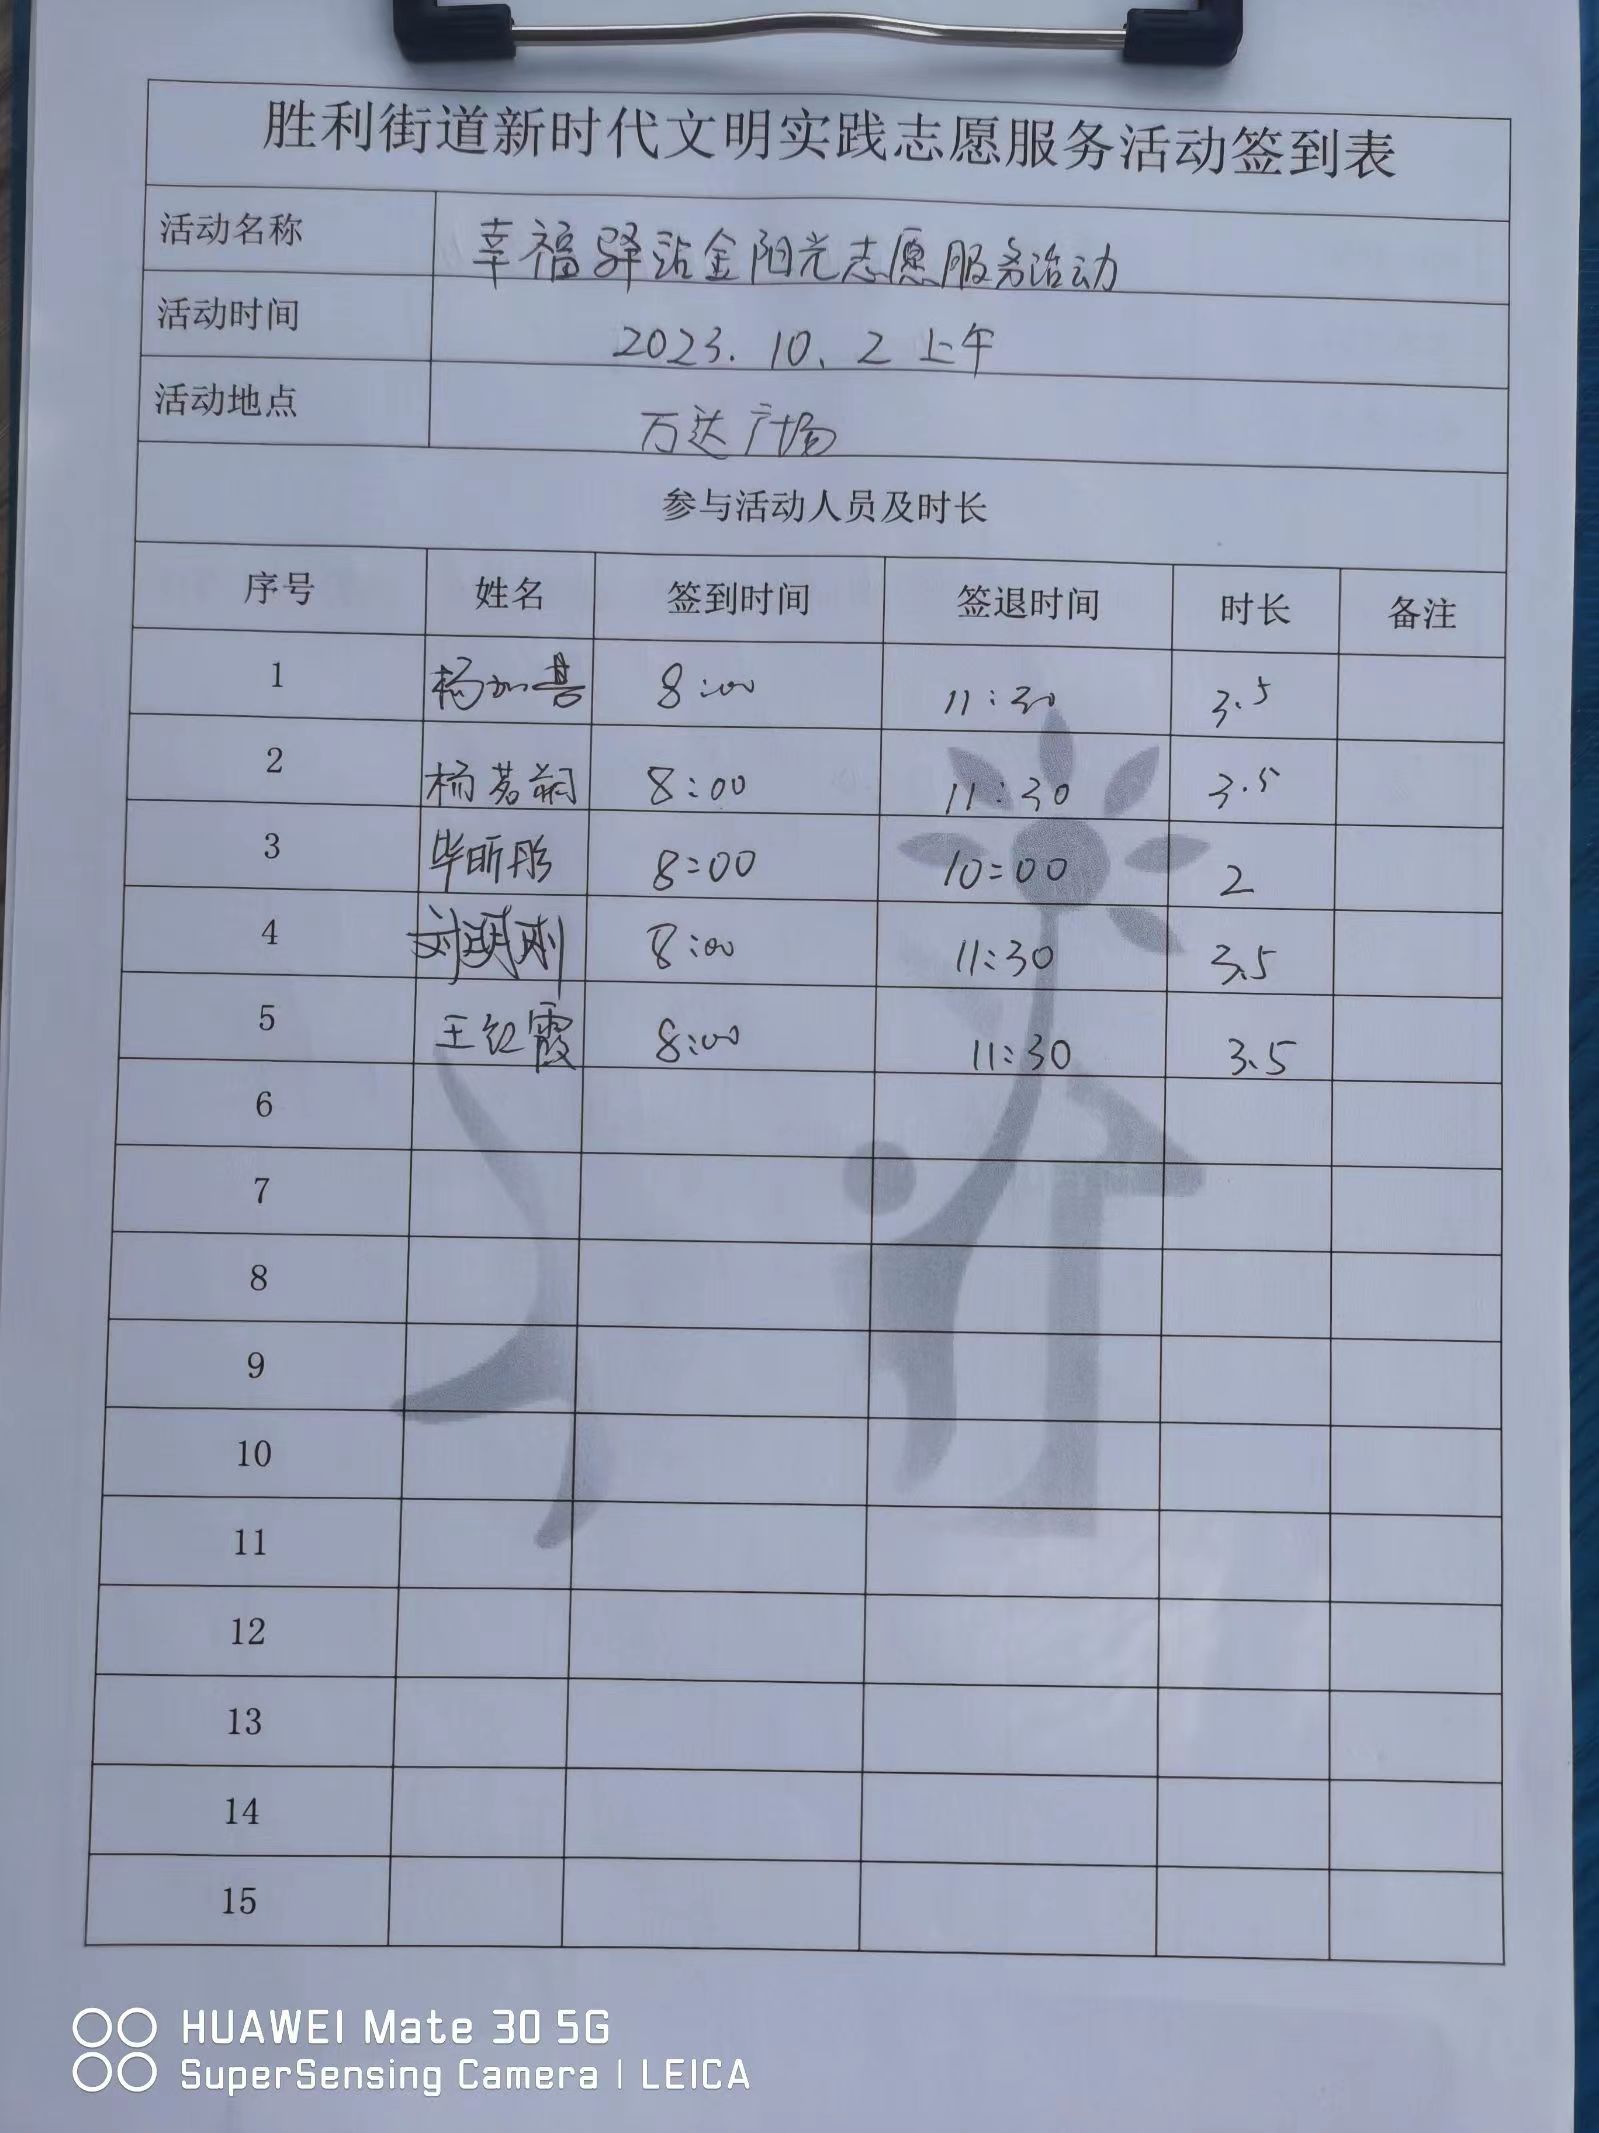 胜利街道新时代文明实践志愿服务活动签到表
活动名称 幸福驿站金阳光志愿服务活动
活动时间 2023.10.2 上午
活动地点 万达广场
参与活动人员及时长
序号 姓名 签到时间 签退时间 时长 备注
1 杨如 8:00 11:30 3.5
2 杨茗 8:00 11:30 3.5
3 毕昕彤 8:00 10:00 2
4 刘明刚 8:00 11:30 3.5
5 王红霞 8:00 11:30 3.5
6
7
8
9
10
11
12
13
14
15
HUAWEI Mate 30 5G
SuperSensing Camera | LEICA